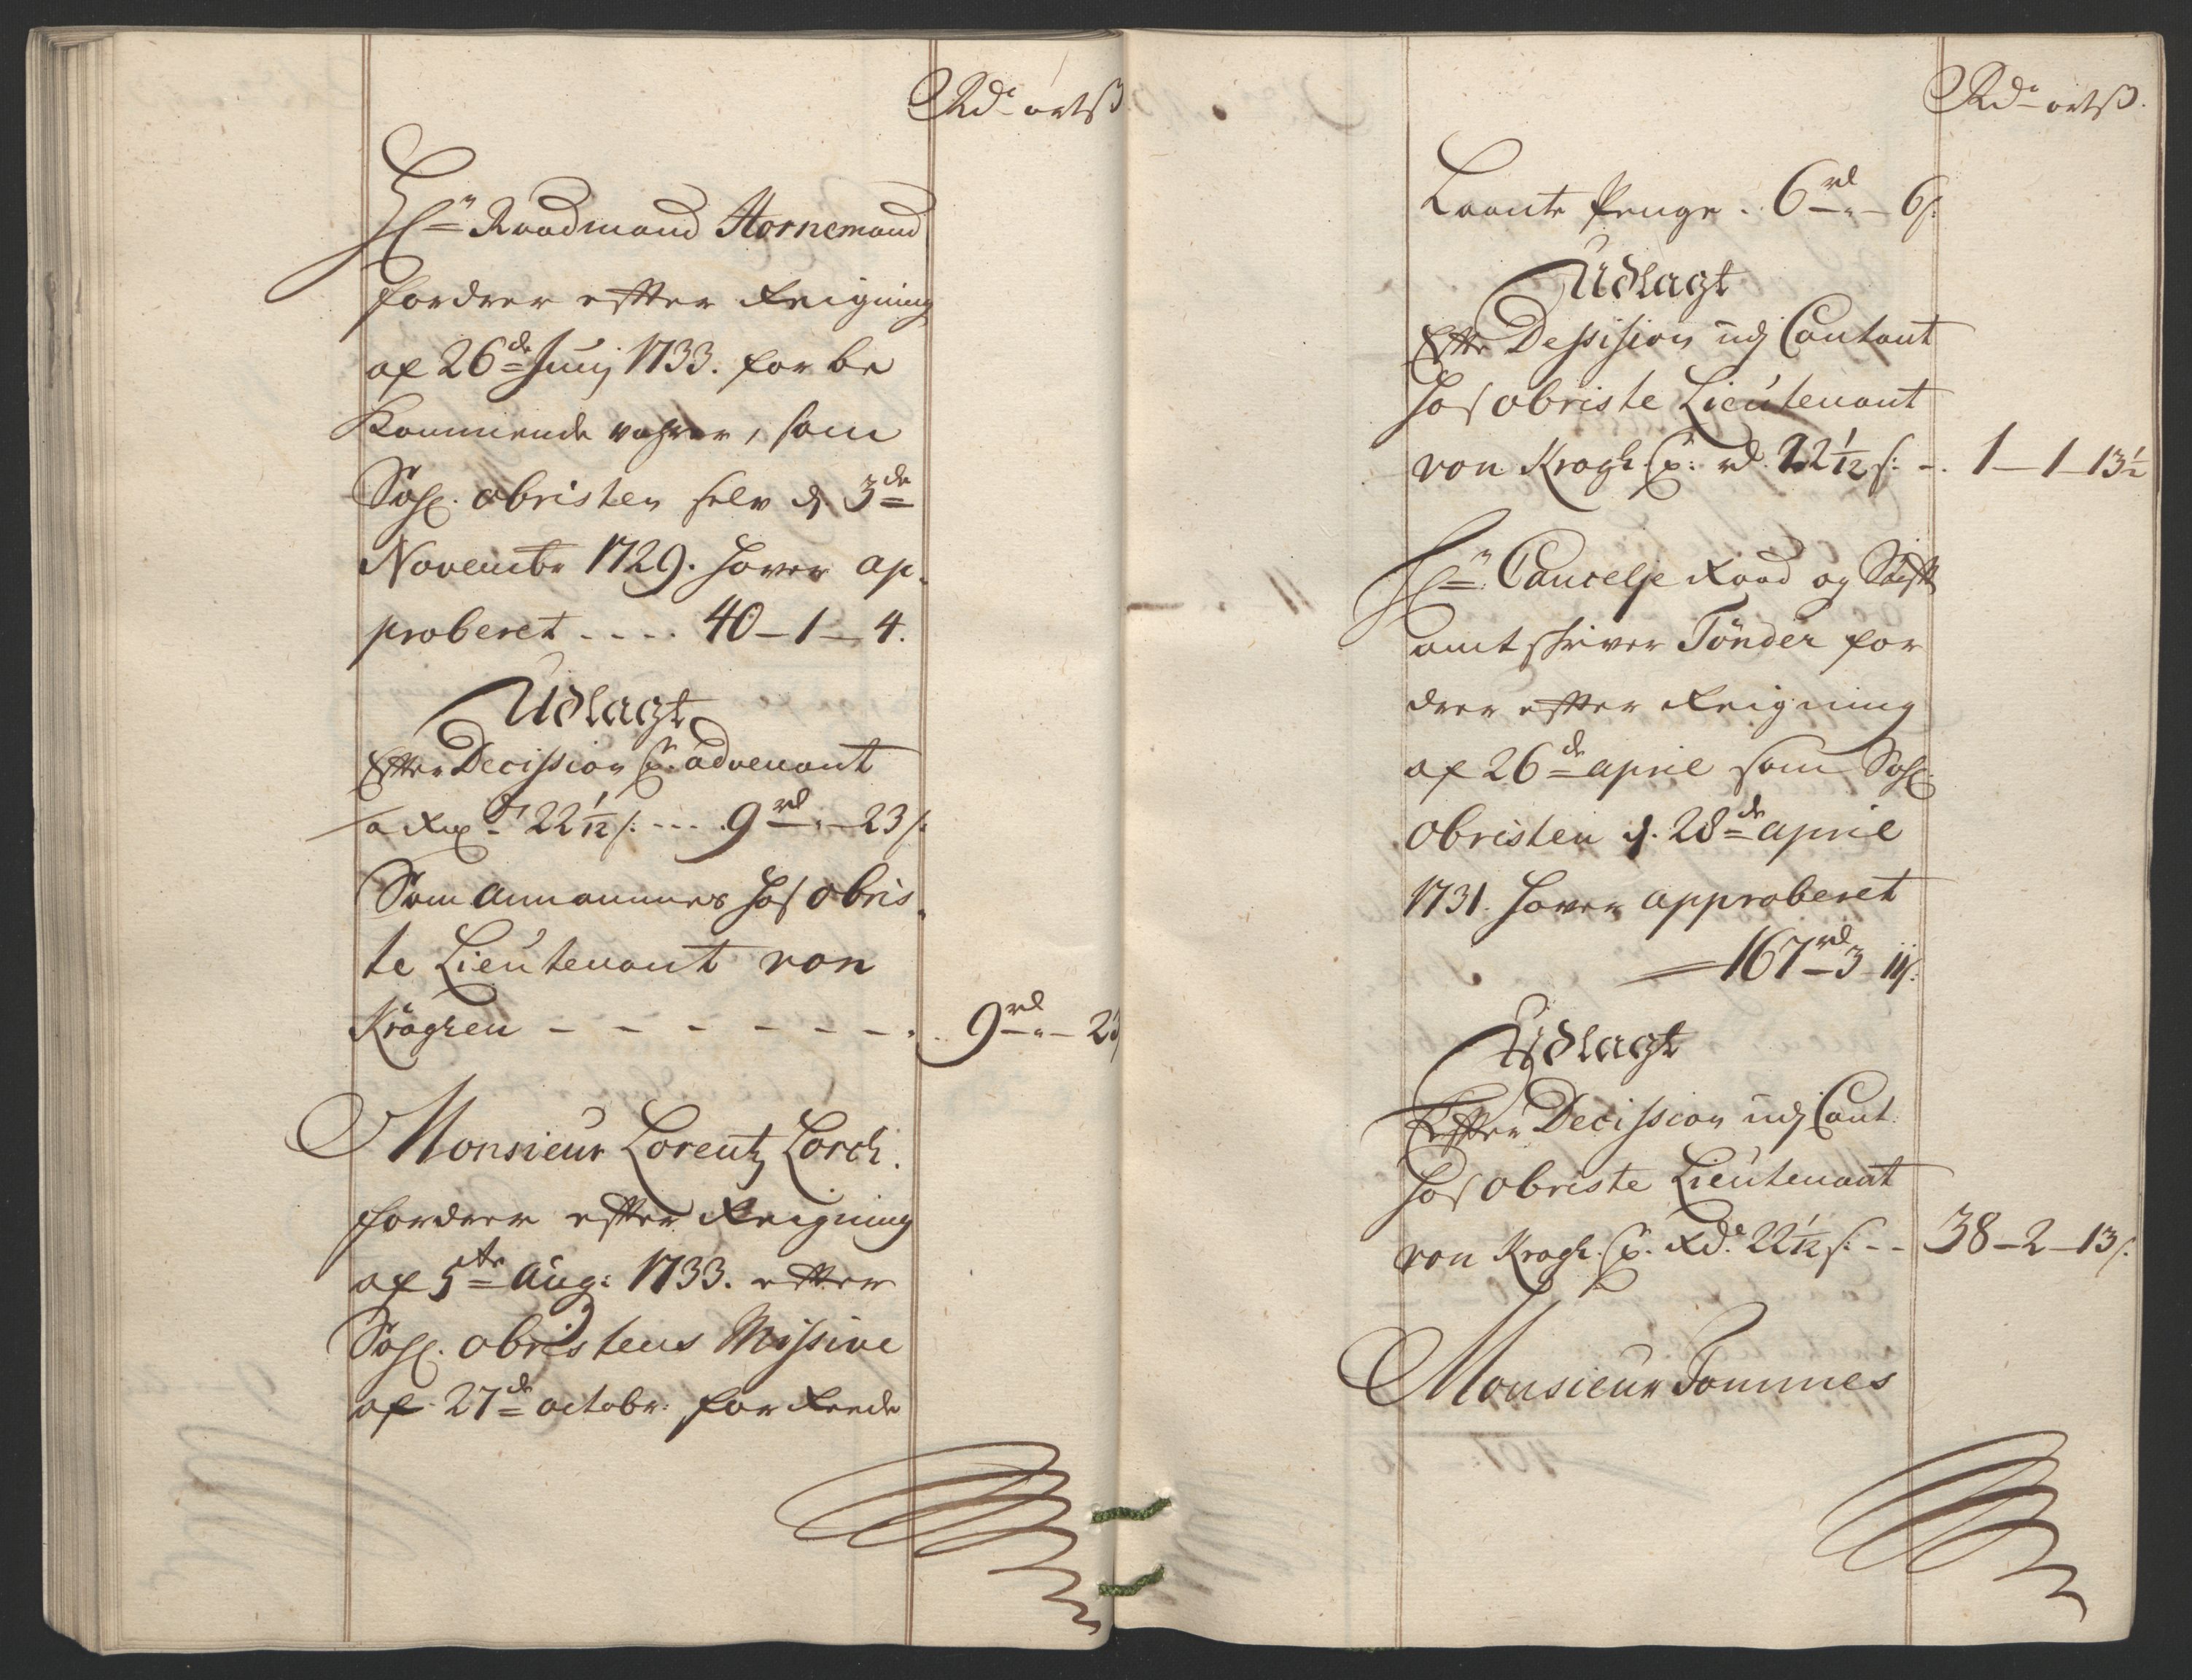 Rd. ort ß
Hr. Raadmand Hornemand
fordrer efter Reigning
af 26de Junij 1733. for be
Kommende vahrer, som
Sahl. obristen selv d. 3de
Novembr 1729. haver ap-
proberet .... 40-1-4.
Udlagt
Efter Decission p. advenant
a Rixd. 22 1/12 s: ... 9rd - 23 s:
Som annammes hos obris-
te Lieutenant von
Kraghen - - - - - - - 9rd - 23
Monsieur Lorentz Lorch.
fordrer efter Reigning
af 5te Aug: 1733. efter
Sahl. obristens Missive
af 27de octobr: for Reede
Rd. ort ß.
Laante Penge. 6rd - 6 s:
Udlagt
Efter Dessision udj Contant
hos obriste Lieutenant
von Kragh. p: rd. 22 1/12 s: - 1-1-13½
Hr. Cancelje Raad og Stifft
amtskriver Tönder for
drer efter Reigning
af 26de april som Sahl.
Obristen d. 28de april
1731. haver approberet
167rd-3-11 s.
Udlagt
Efter Decission udj Cont.
hos obriste Lieutenant
von Kragh. p. Rd. 22 1/12 s: - - 38-2-13 s:
Monsieur Tommes